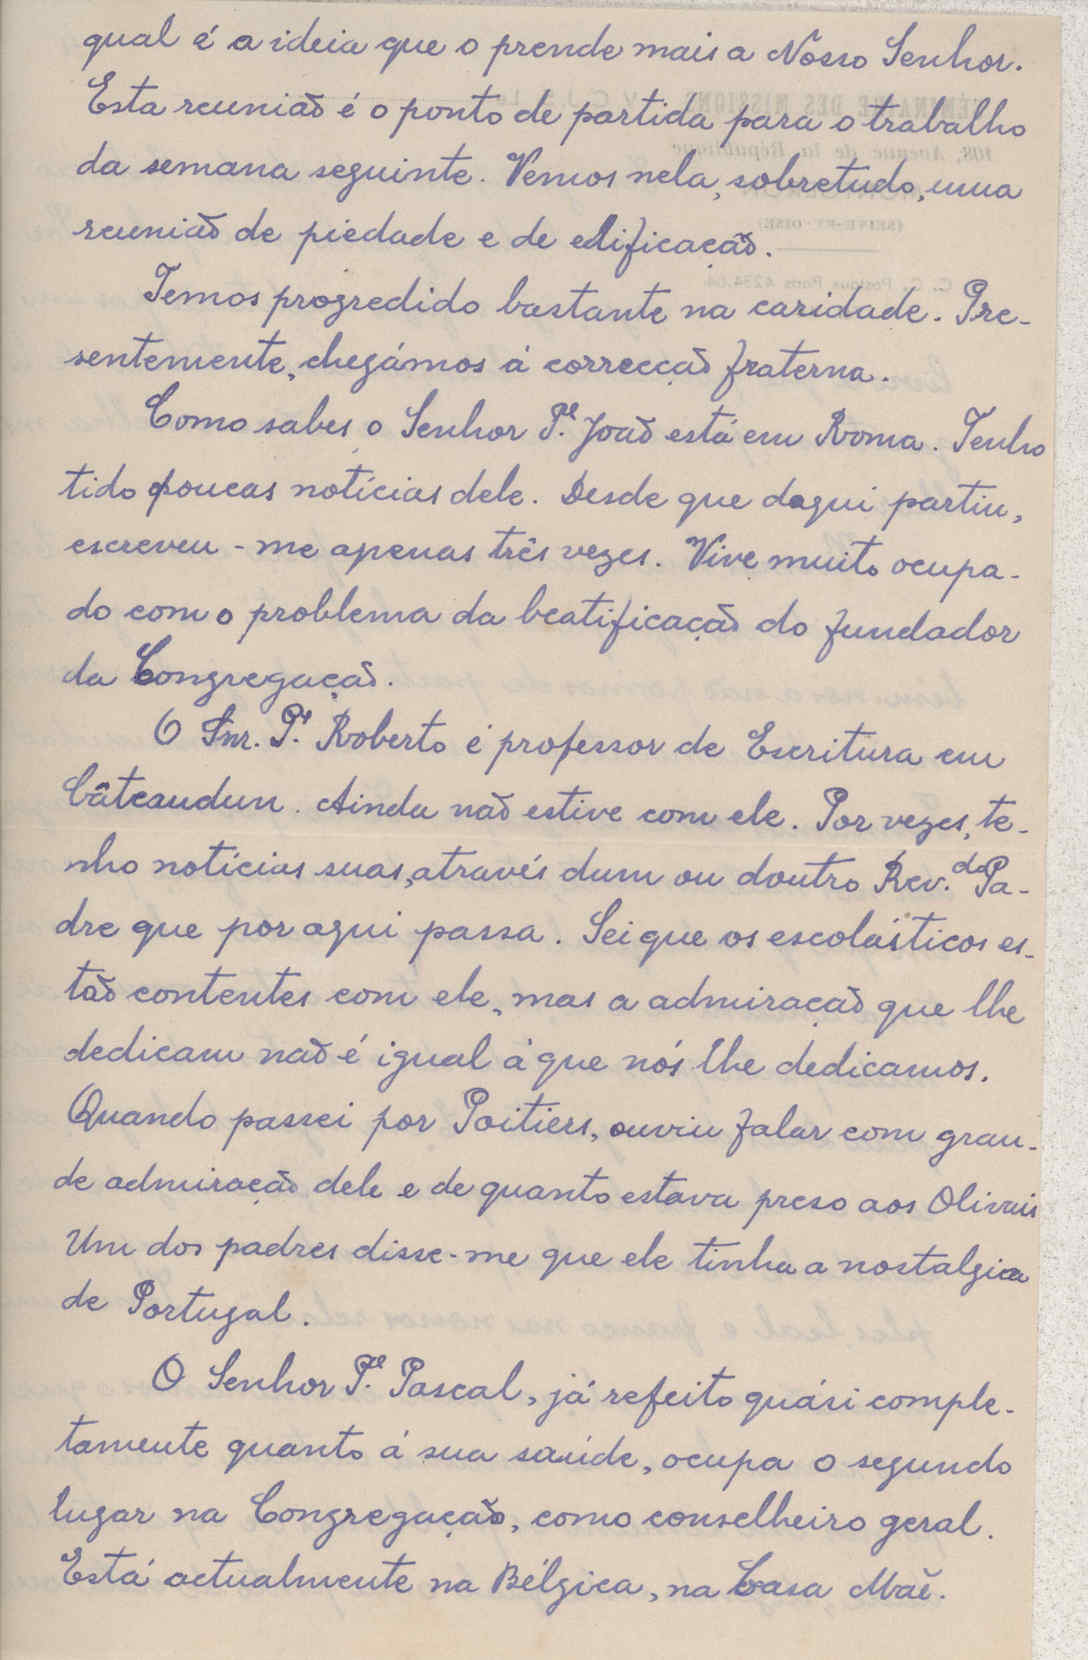 qual é a ideia que o prende mais a Nosso Senhor.
Esta reunião é o ponto de partida para o trabalho
da semana seguinte. Vemos nela, sobretudo, uma
reunião de piedade e de edificação.
Temos progredido bastante na caridade. Pre-
sentemente, chegámos á correcção fraterna.
Como sabes o Senhor P.e João está em Roma. Tenho
tido poucas notícias dele. Desde que daqui partiu,
escreveu-me apenas três vezes. Vive muito ocupa-
do com o problema da beatificação do fundador
da Congregação.
O Snr. P.e Roberto é professor de Escritura em
Câteaudun. Ainda não estive com ele. Por vezes, te-
nho notícias suas, através dum ou doutro Rev.do Pa-
dre que por aqui passa. Sei que os escolásticos es-
tão contentes com ele, mas a admiração que lhe
dedicam não é igual á que nós lhe dedicamos.
Quando passei por Poitiers, ouviu falar com gran-
de admiração dele e de quanto estava preso aos Olivais
Um dos padres disse-me que ele tinha a nostalgia
de Portugal.
O Senhor P.e Pascal, já refeito quási comple-
tamente quanto á sua saúde, ocupa o segundo
lugar na Congregação, como conselheiro geral.
Está actualmente na Bélgica, na Casa Mãe.